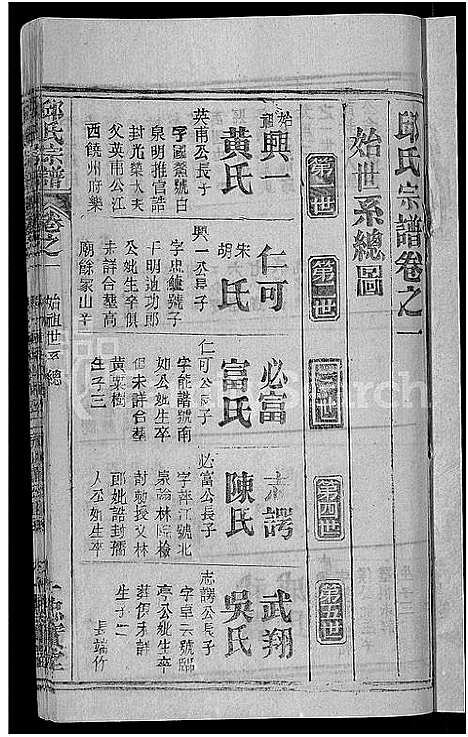 邱氏宗譜卷之一
始世系總圖
第一世
第二世
第三世
第四世
第五世
始祖
興一
黄氏
英甫公長子
字國鶯號白
泉明推官誥
封光榮大夫
父英甫公江
西饒州府樂
仁可
朱
胡
氏
興一公長子
字忠號
千明迪功郎
公妣生卒俱
未詳合葬高
廟餘家山辛
必富
富氏
仁可公長子
字能諧號南
如公妣生卒
俱未詳合葬
黄葉樹
生子三
志諤
陳氏
必富公長子
字萍江號北
宗翰林院檢
封勅授文林
郎妣誥封孺
人公妣生卒
武翔
吳氏
志諤公長子
字卓云號
亭公妣生卒
葬俱未詳
生子二
長端竹
邱氏宗譜
卷之一
始祖世系總